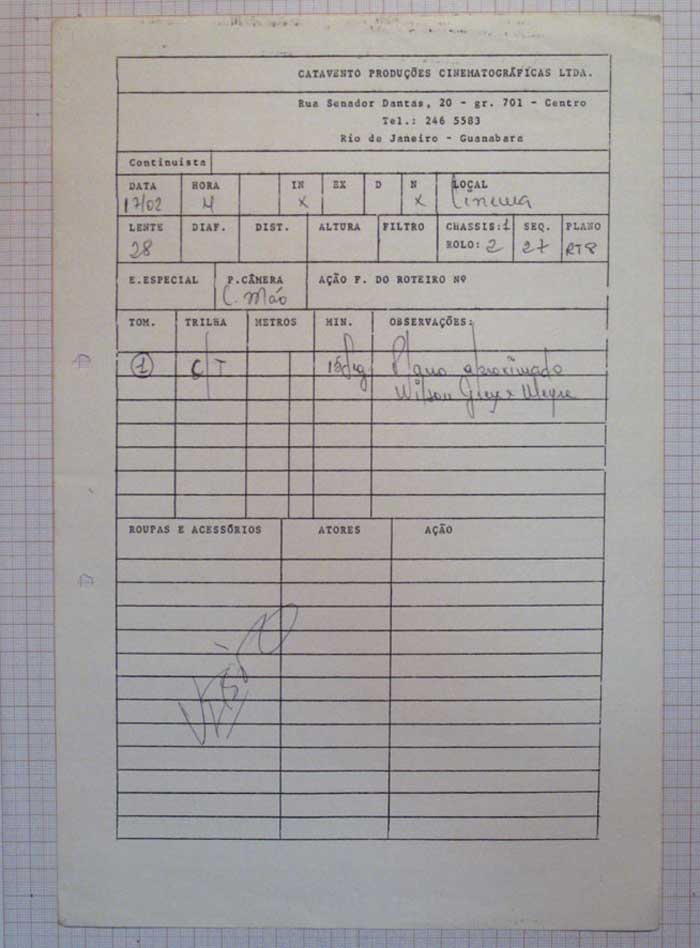 CATAVENTO PRODUÇÕES CINEMATOGRÁFICAS LTDA.
Rua Senador Dantas, 20 - gr. 701 - Centro
Tel.: 246 5583
Rio de Janeiro - Guanabara
Continuista
DATA HORA IN EX D N LOCAL
17/02 M X X Cinema
LENTE DIAF. DIST. ALTURA FILTRO CHASSIS:1 SEQ. PLANO
28 ROLO: 2 27 RT8
E.ESPECIAL P.CÂMERA AÇÃO F. DO ROTEIRO Nº
C. Mão
TOM. TRILHA METROS MIN. OBSERVAÇÕES:
1 C/T Plano aproximado
Wilson Grey x
ROUPAS E ACESSÓRIOS ATORES AÇÃO
VISTO